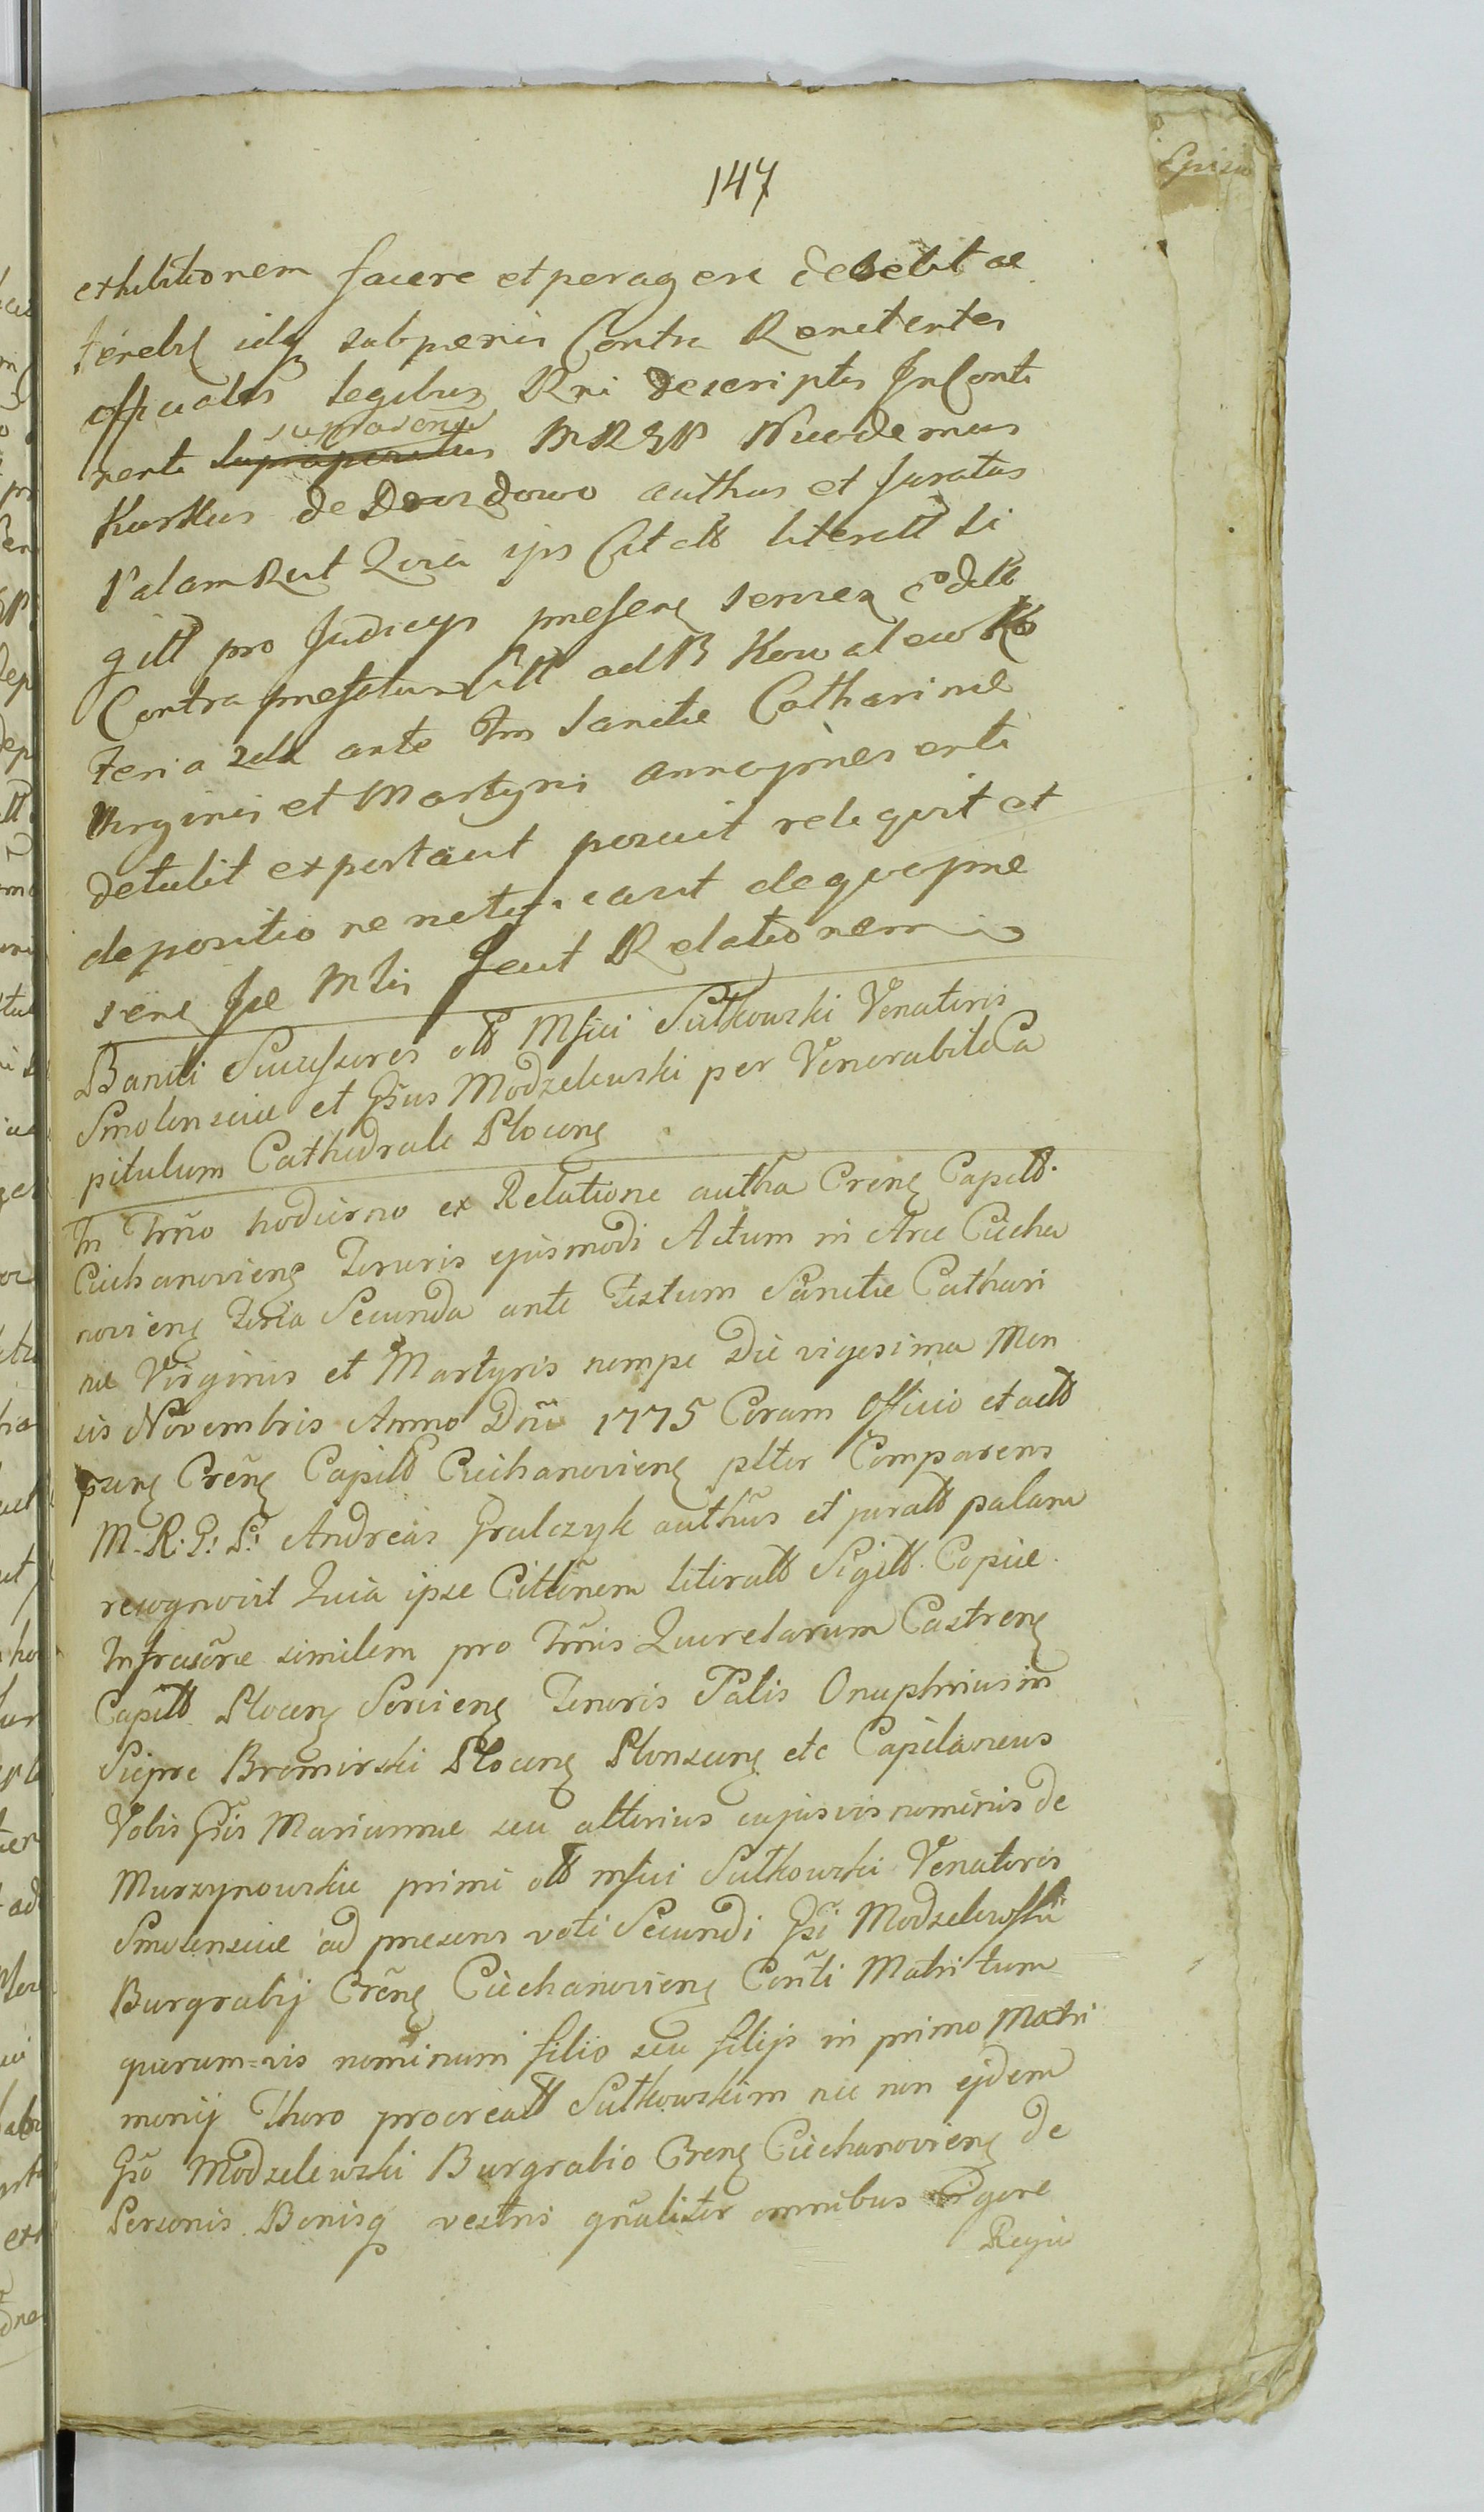 147
exhibitionem facere et peragere debebit ac
tenebr idq sub penis Contra Renitentes
officiales legibus Rni descriptis In Conti
nenti suprascrip MRGP Nicodemus
Karskus de authus et Juratus
Palam Rect Quia ips literatt Si
gill pro Judicijs Contra ad B Kowalewsk
Feria 2da ante Sanctae Catharinae
Virginis et Martyris annopraesenti
detulit exportavit posuit reliquit et
depositione notificavit de quo prae
sens fecit Relationem
Baniti Successores ott Mfici Sutkowski Venatoris
Smolensciae et Gsus Modzelewski per Venerabile Ca
pitulum Cathedrale Plocens
In Trno hodierno ex Relatione autha Crens Capitt.
Ciechanoviens Tenoris ejusmodi Actum in Arce Ciecha
noviens Feria Secunda ante Festum Sanctae Cathari
nae Virginis et Martyris nempe Die vigesima Men
sis Novembris Anno Dni 1775 Coram Officio et actt
psens Crens Capitt Ciechanoviens plter Comparens
M. R. G: P: Andreas Gralczyk authus et juratt palam
recognovit Quia ipse Cittonem literatt Sigitt. Copiae
Infrascrae similem pro Trmis Querelarum Castrens
Capitt Plocens Serviens Tenoris Talis Onuphrius in
Siepre Bromirski Plocens Plonscens etc Capitaneus
Vobis Gsis Mariannae seu alterius cujusvis nominis de
Murzynowskie primi ott mfici Sutkowski Venatoris
Smolensciae ad praesens voti Secundi Gsi Modzelewski
Burgrabij Crens Ciechanoviens Conti Matri tum
quarum=vis nominum filio seu filijs in primo Matri
monij Thoro procreatt Sutkowskim nec non ejdem
Gso Modzelewski Burgrabio Crens Ciechanoviens de
Personis Bonisq vestris gnaliter omnibus Vigore
Regia